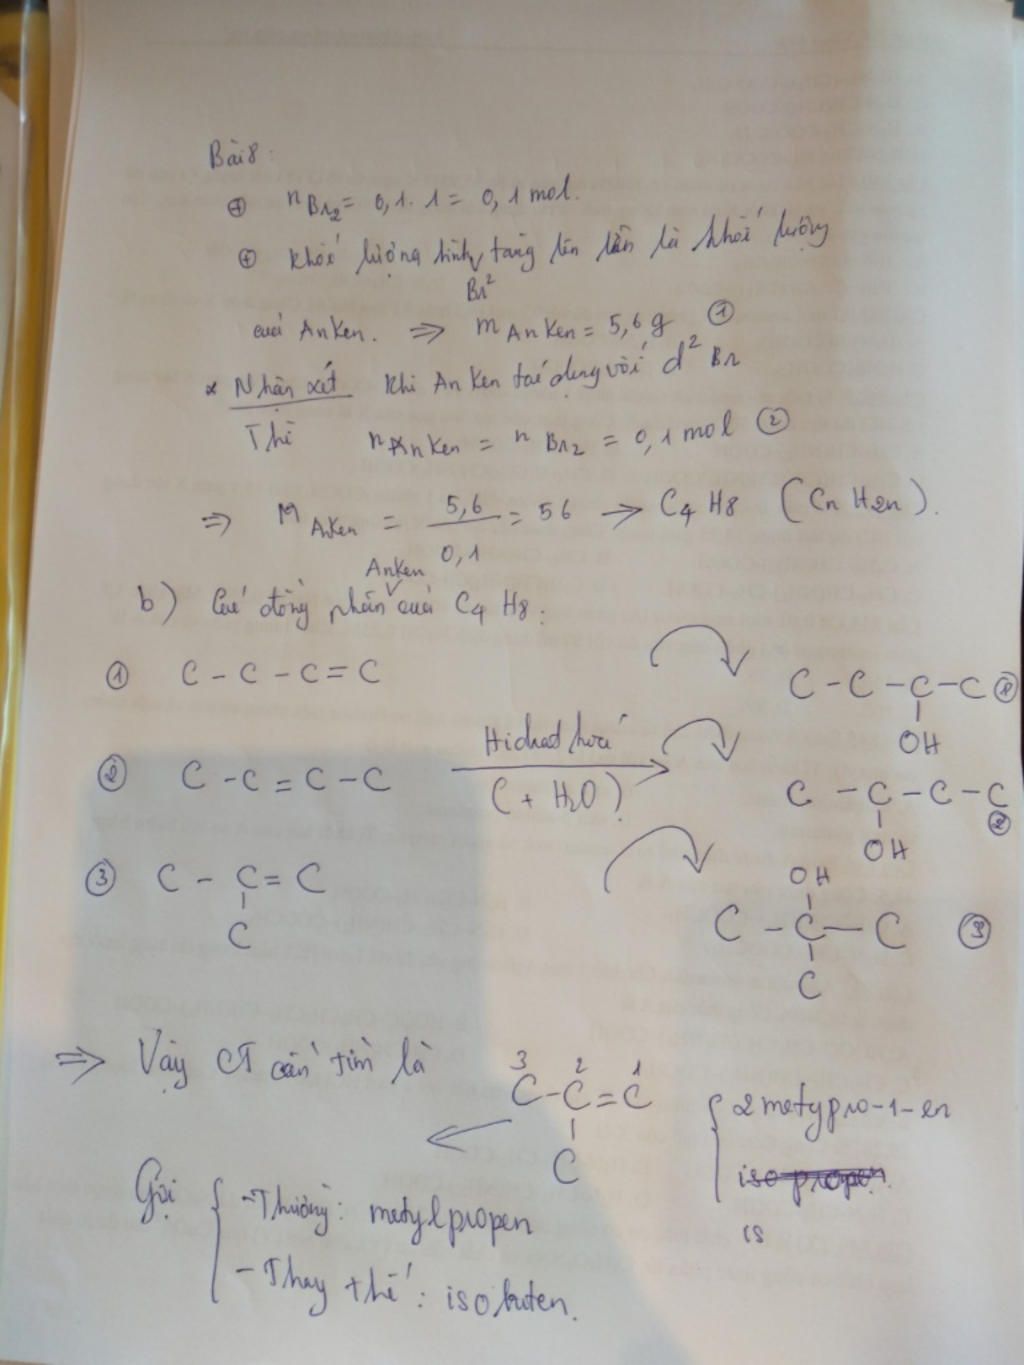 Bài 8:
⊕ nBr2 = 0,1. 1 = 0,1 mol.
⊕ Khối lượng bình tăng lên là khối lượng
Br2
của AnKen. ⇒ m AnKen = 5,6 g ①
* Nhận xét Khi AnKen tác dụng với d2 Br
Thì nAnKen = nBr2 = 0,1 mol ②
⇒ M AnKen = 5,6 / 0,1 = 56 → C4H8 (CnH2n).
AnKen
b) Các đồng phân của C4H8:
① C - C - C = C
C - C - C - C ①
OH
② C - C = C - C
Hidrat hoá
(+ H2O)
C - C - C - C
②
OH
③ C - C = C
C
OH
C - C - C ③
C
⇒ Vậy CT cần tìm là
3 2 1
C - C = C
C
2 metypro-1-en
iso propen
is
Gọi
- Thường: metylpropen
- Thay thế: isobuten.